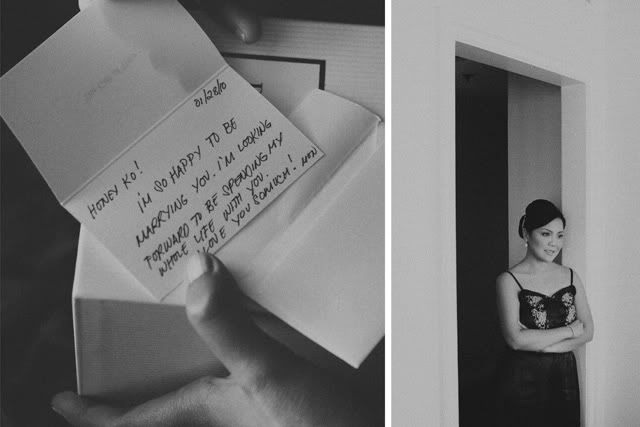 01/28/10
HONEY KO!
I'M SO HAPPY TO BE
MARRYING YOU. I'M LOOKING
FORWARD TO BE SPENDING MY
WHOLE LIFE WITH YOU.
LOVE YOU SO MUCH! MON